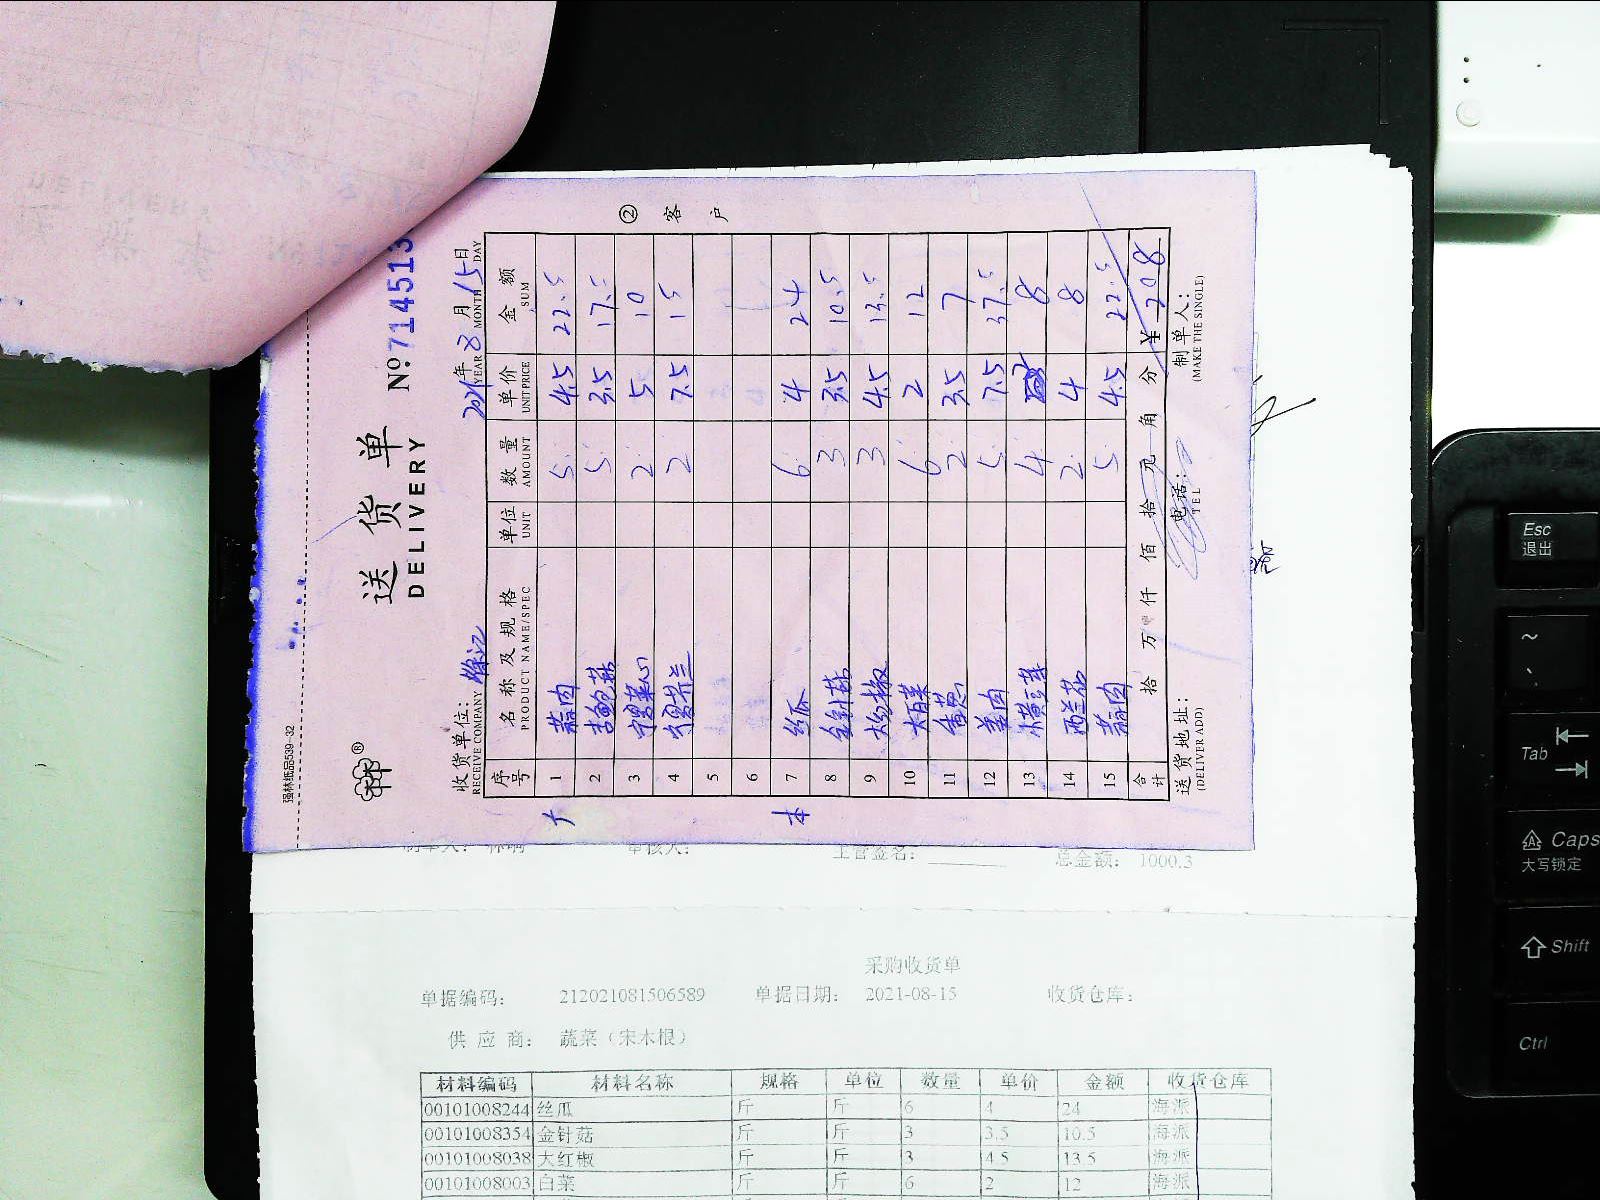 强林纸品539-32
®
送货单
DELIVERY
№714513
收货单位: 徐记
RECEIVE COMPANY
2021年8月15日
YEAR MONTH DAY
序号 名称及规格 单位 数量 单价 金额
PRODUCT NAME/SPEC UNIT AMOUNT UNIT PRICE SUM
1 蒜肉 5 4.5 22.5
2 杏鲍菇 5 3.5 17.5
3 菜心 2 5 10
4 芥兰 2 7.5 15
5
6
7 丝瓜 6 4 24
8 金针菇 3 3.5 10.5
9 大红椒 3 4.5 13.5
10 大白菜 6 2 12
11 香葱 2 3.5 7
12 姜肉 5 7.5 37.5
13 4 8
14 西兰花 2 4 8
15 蒜肉 5 4.5 22.5
合计 拾 万 仟 佰 拾 元 角 分 ¥ 208
送货地址: 电话: 制单人:
(DELIVER ADD) TEL (MAKE THE SINGLE)
②客户
制单人: 审核人: 主管签名: 总金额: 1000.3
采购收货单
单据编码: 212021081506589 单据日期: 2021-08-15 收货仓库:
供应商: 蔬菜(宋木根)
材料编码 材料名称 规格 单位 数量 单价 金额 收货仓库
00101008244 丝瓜 斤 斤 6 4 24 海派
00101008354 金针菇 斤 斤 3 3.5 10.5 海派
00101008038 大红椒 斤 斤 3 4.5 13.5 海派
00101008003 白菜 斤 斤 6 2 12 海派
Esc
退出
~
Tab
Caps
大写锁定
Shift
Ctrl